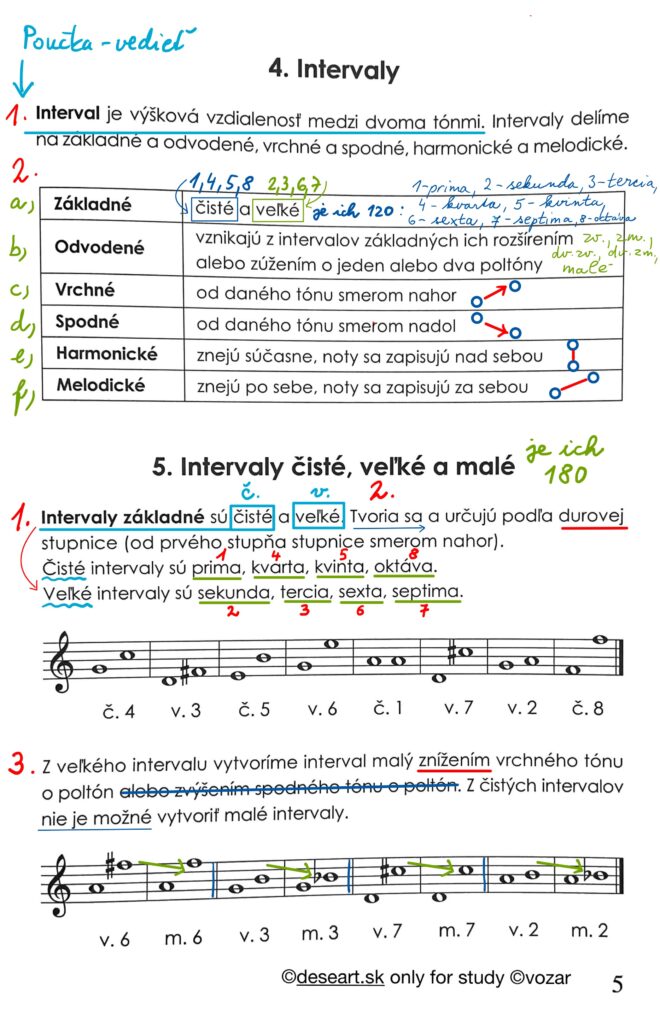 Poučka - vedieť
4. Intervaly
1. Interval je výšková vzdialenosť medzi dvoma tónmi. Intervaly delíme
na základné a odvodené, vrchné a spodné, harmonické a melodické.
2.
1,4,5,8 2,3,6,7 1-prima, 2-sekunda, 3-tercia,
a) Základné čisté a veľké je ich 120: 4-kvarta, 5-kvinta,
6-sexta, 7-septima, 8-oktáva
b) Odvodené vznikajú z intervalov základných ich rozšírením zv., zm.,
alebo zúžením o jeden alebo dva poltóny dv.zv., dv.zm,
malé
c) Vrchné od daného tónu smerom nahor
d) Spodné od daného tónu smerom nadol
e) Harmonické znejú súčasne, noty sa zapisujú nad sebou
f) Melodické znejú po sebe, noty sa zapisujú za sebou
5. Intervaly čisté, veľké a malé je ich
180
č. v. 2.
1. Intervaly základné sú čisté a veľké Tvoria sa a určujú podľa durovej
stupnice (od prvého stupňa stupnice smerom nahor).
1 4 5 8
Čisté intervaly sú prima, kvarta, kvinta, oktáva.
Veľké intervaly sú sekunda, tercia, sexta, septima.
2 3 6 7
č. 4 v. 3 č. 5 v. 6 č. 1 v. 7 v. 2 č. 8
3. Z veľkého intervalu vytvoríme interval malý znížením vrchného tónu
o poltón alebo zvýšením spodného tónu o poltón. Z čistých intervalov
nie je možné vytvoriť malé intervaly.
v. 6 m. 6 v. 3 m. 3 v. 7 m. 7 v. 2 m. 2
©deseart.sk only for study ©vozar 5